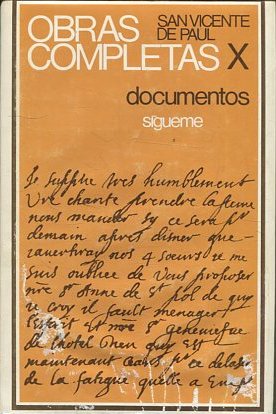 OBRAS
COMPLETAS X
SAN VICENTE
DE PAUL
documentos
sígueme
Je supplie tres humblement
Vre charite prendre la peine
nous mander sy ce sera pr
demain apres disner que
nos 4 soeurs je me
suis oubliee de vous proposer
nre Sr Anne de St pol de quy
je croy il fault menager
lesprit et nre Sr geneviefve
de lhotel Dieu quy est
maintenant ceans pr ce delasser
de la fatigue quelle a